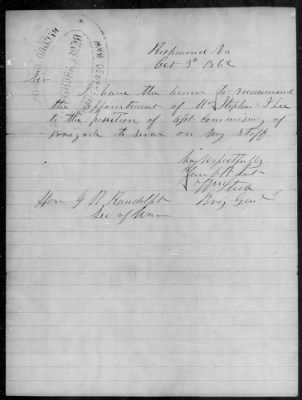 Richmond Va
Oct 3rd 1862
Sir
I have the honor to recommend
the appointment of Mr Stephen Lee
to the position of asst commissary of
to serve on my staff
Very respectfully
Your obt
Brig Genl
Hon G W Randolph
Sec of War
WAR DEPT